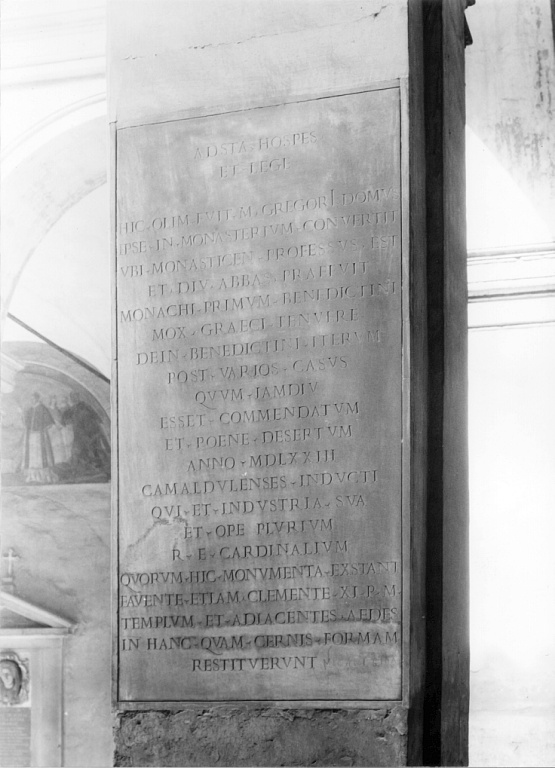 ADSTA·HOSPES
ET·LEGE
HIC·OLIM·FVIT·M·GREGORI·DOMVS
IPSE·IN·MONASTERIVM·CONVERTIT
VBI·MONASTICEN·PROFESSVS·EST
ET·DIV·ABBAS·PRAEFVIT
MONACHI·PRIMVM·BENEDICTINI
MOX·GRAECI·TENVERE
DEIN·BENEDICTINI·ITERVM
POST·VARIOS·CASVS
QVVM·IAMDIV
ESSET·COMMENDATVM
ET·POENE·DESERTVM
ANNO·MDLXXIII
CAMALDVLENSES·INDVCTI
QVI·ET·INDVSTRIA·SVA
ET·OPE·PLVRIVM
R·E·CARDINALIVM
QVORVM·HIC·MONVMENTA·EXSTANT
FAVENTE·ETIAM·CLEMENTE·XI·P·M·
TEMPLVM·ET·ADIACENTES·AEDES
IN·HANC·QVAM·CERNIS·FORMAM
RESTITVERVNT